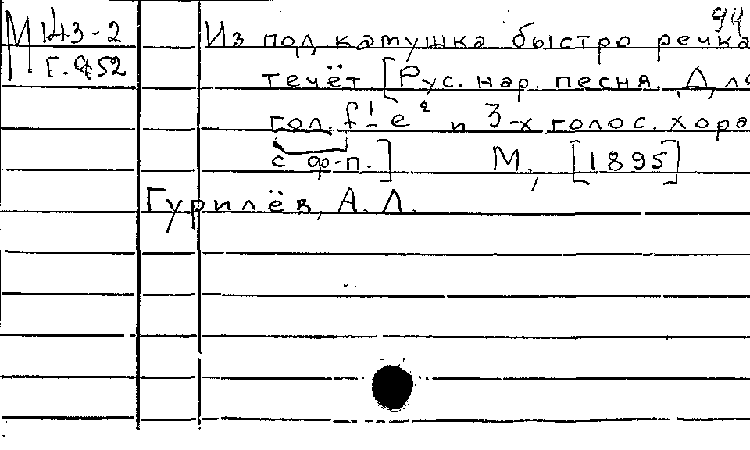 94
М 143-2
Г. 952
Из под камушка быстро речка
течёт [Рус. нар. песня. Для
гол. f¹-e² и 3-х голос. хора
с ф-п.] М., [1895]
Гурилёв, А. Л.